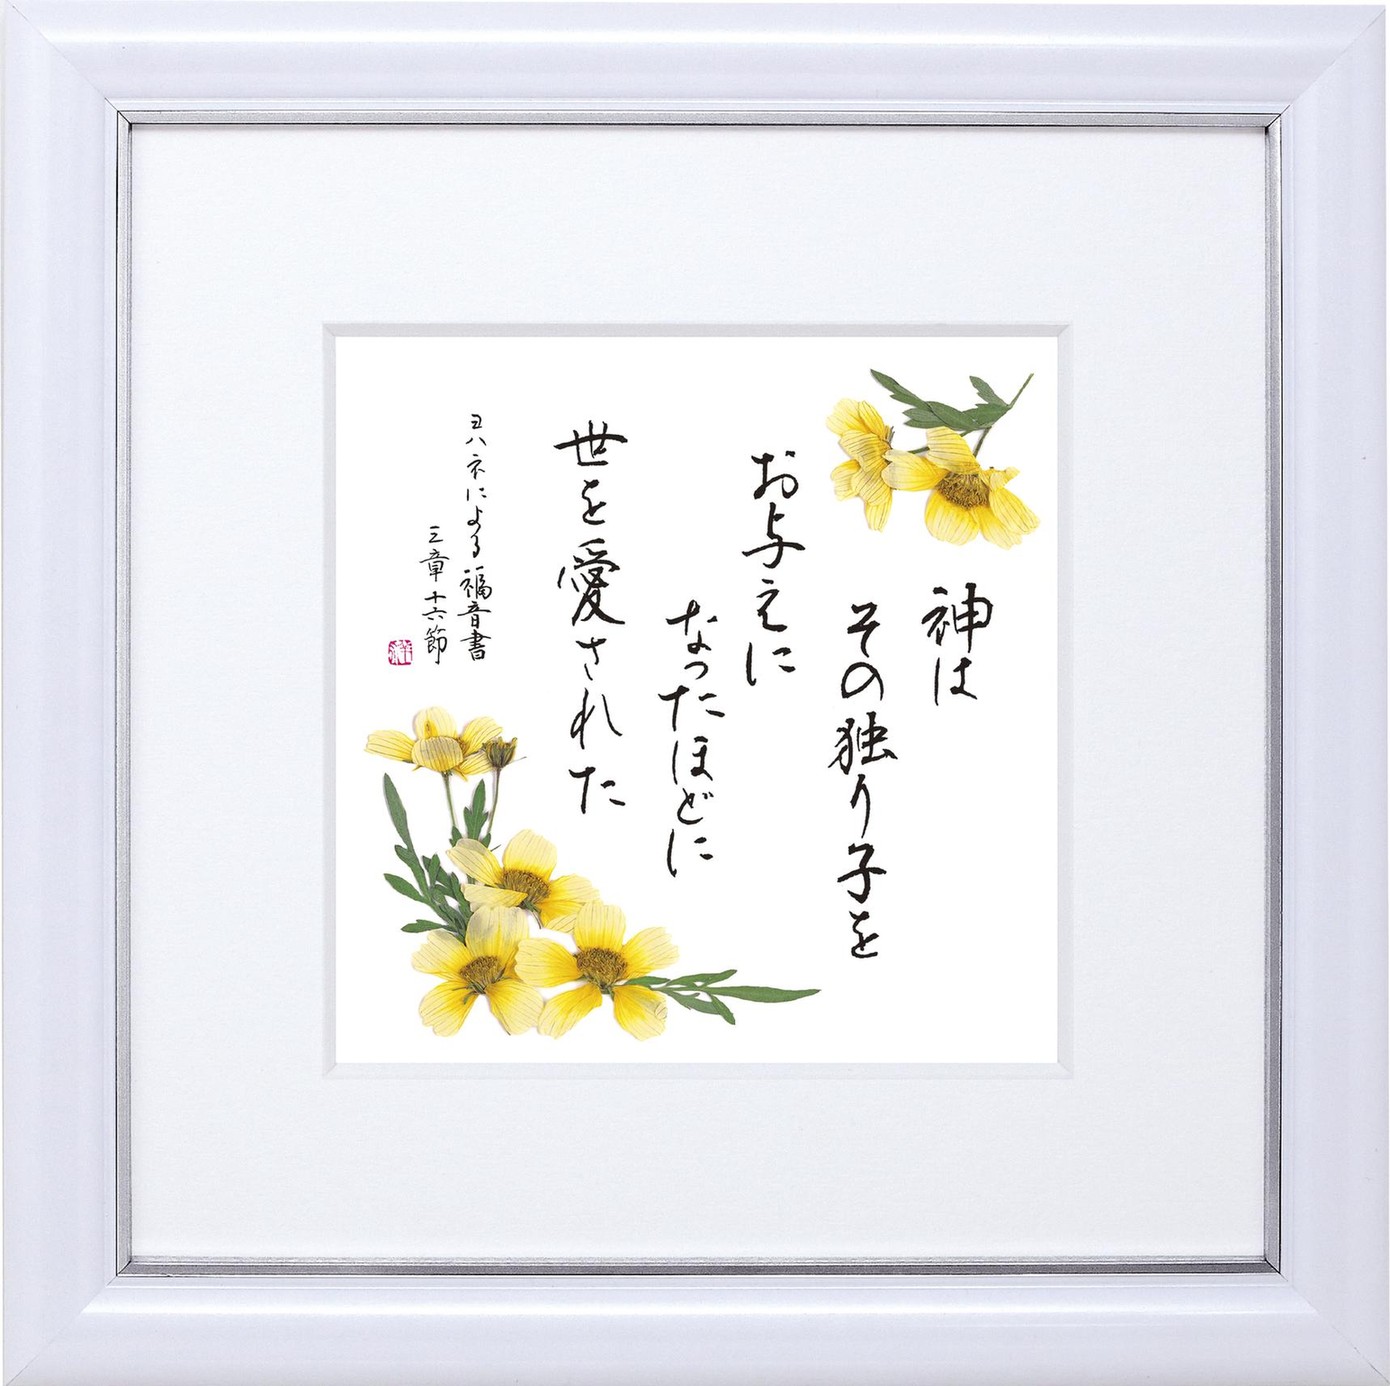 神は
その独り子を
お与えに
なったほどに
世を愛された
ヨハネによる福音書
三章十六節